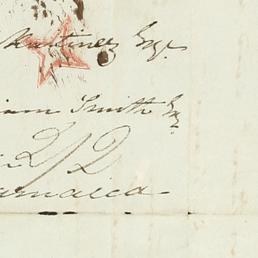 Martinez Esqr.
iam Smith Esqr
2/2
amaica